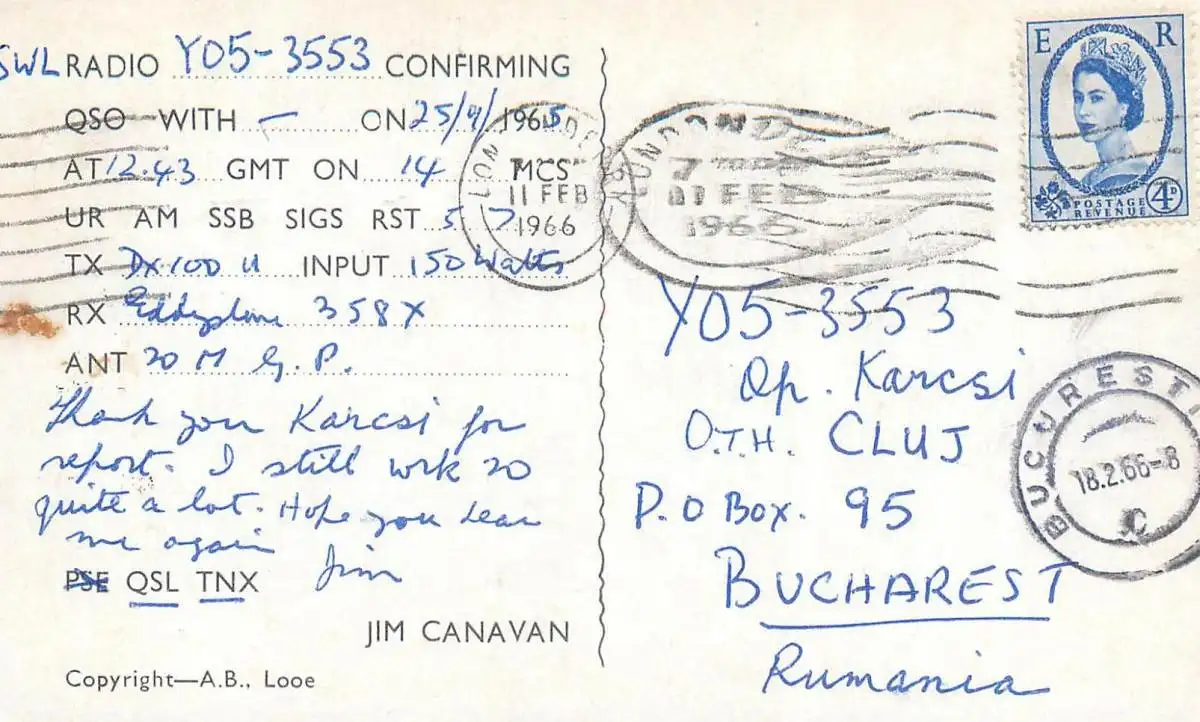 SWL RADIO YO5-3553 CONFIRMING
QSO WITH - ON 25/9/1965
AT 12.43 GMT ON 14 MCS
UR AM SSB SIGS RST 5 7
TX DX100 U INPUT 150 Watts
RX Eddystone 358X
ANT 20 M G.P.
Thank you Karcsi for
report. I still work 20
quite a lot. Hope you hear
me again
Jim
PSE QSL TNX
JIM CANAVAN
Copyright—A.B., Looe
E R
POSTAGE
REVENUE
4D
11 FEB
1966
LONDONDERRY
11 FEB
1966
YO5-3553
Op. Karcsi
Q.T.H. CLUJ
P.O Box. 95
BUCHAREST
Rumania
BUCUREST
18.2.66-8